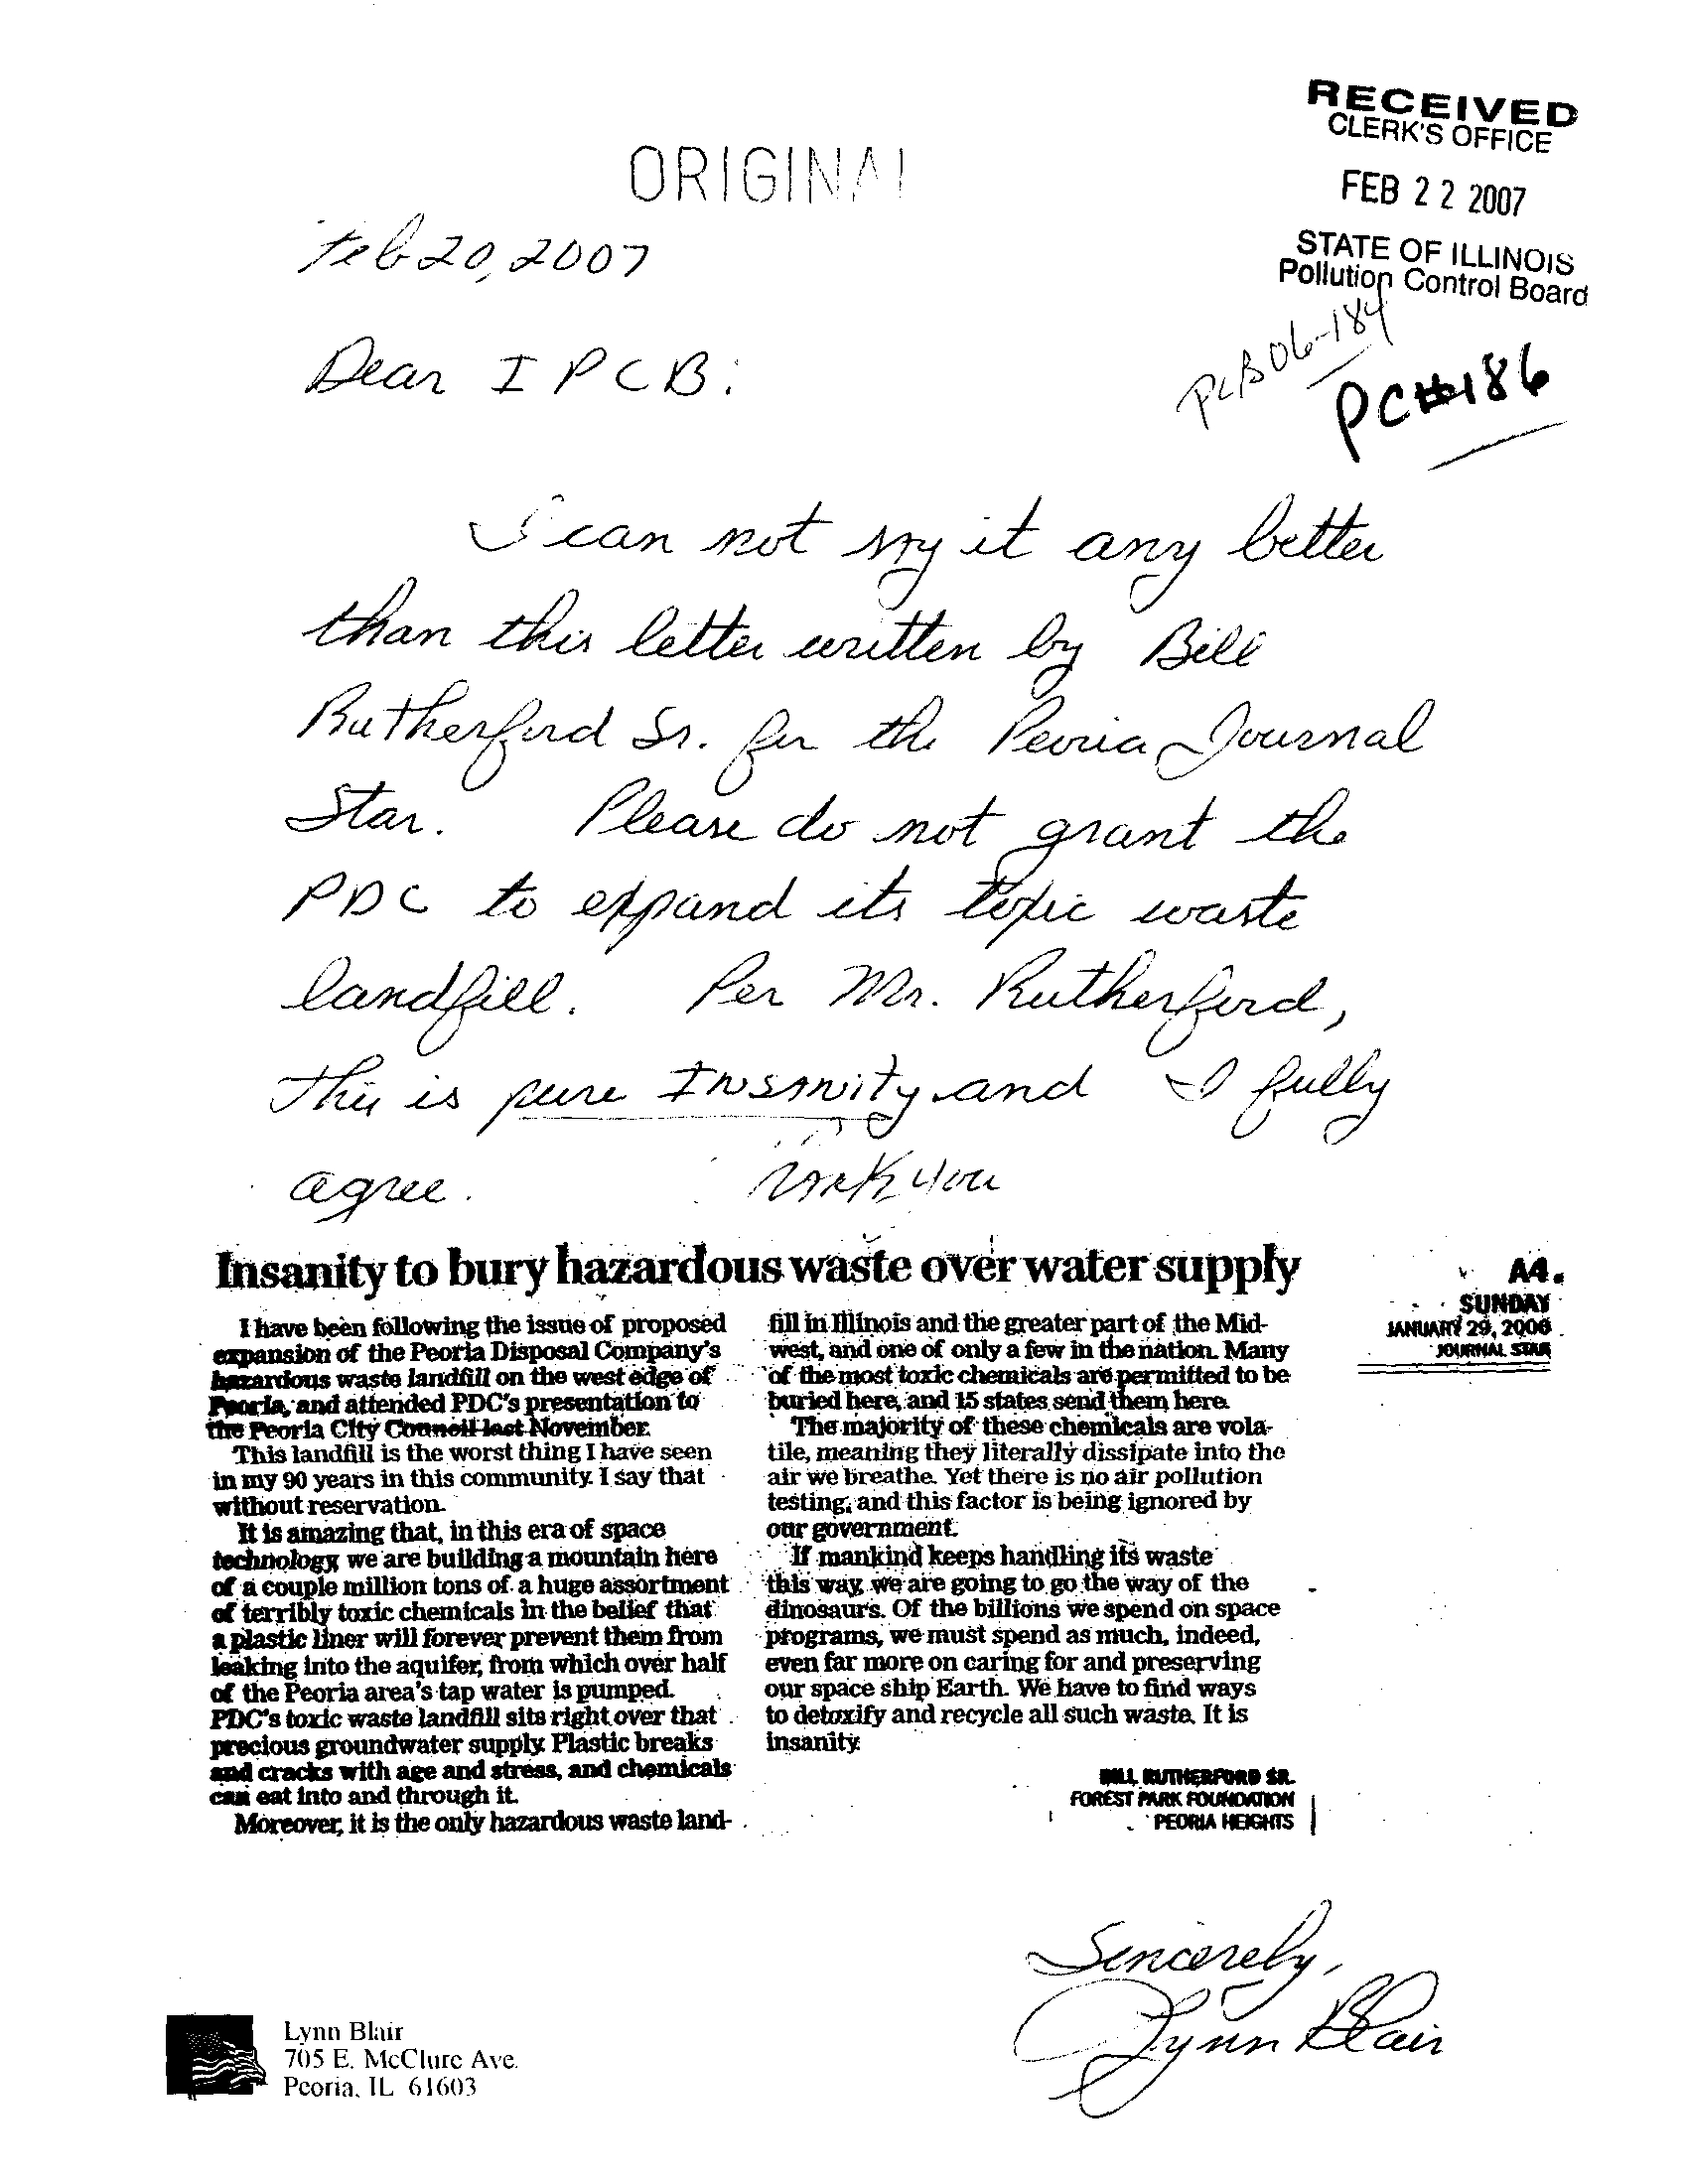 RECEIVED
CLERK'S OFFICE
FEB 22 2007
STATE OF ILLINOIS
Pollution Control Board
ORIGINAL
PCB06-184
PC#186
Feb 20, 2007
Dear IPCB:
I can not say it any better
than this letter written by Bill
Rutherford Sr. for the Peoria Journal
Star. Please do not grant the
PDC to expand its toxic waste
landfill. Per Mr. Rutherford,
this is pure Insanity and I fully
agree. Thank you
Insanity to bury hazardous waste over water supply
A4.
SUNDAY
JANUARY 29, 2006
JOURNAL STAR
I have been following the issue of proposed
expansion of the Peoria Disposal Company's
hazardous waste landfill on the west edge of
Peoria, and attended PDC's presentation to
the Peoria City Council last November.
This landfill is the worst thing I have seen
in my 90 years in this community. I say that
without reservation.
It is amazing that, in this era of space
technology, we are building a mountain here
of a couple million tons of a huge assortment
of terribly toxic chemicals in the belief that
a plastic liner will forever prevent them from
leaking into the aquifer, from which over half
of the Peoria area's tap water is pumped.
PDC's toxic waste landfill sits right over that
precious groundwater supply. Plastic breaks
and cracks with age and stress, and chemicals
can eat into and through it.
Moreover, it is the only hazardous waste land-
fill in Illinois and the greater part of the Mid-
west, and one of only a few in the nation. Many
of the most toxic chemicals are permitted to be
buried here, and 15 states send them here.
The majority of these chemicals are vola-
tile, meaning they literally dissipate into the
air we breathe. Yet there is no air pollution
testing, and this factor is being ignored by
our government.
If mankind keeps handling its waste
this way, we are going to go the way of the
dinosaurs. Of the billions we spend on space
programs, we must spend as much, indeed,
even far more on caring for and preserving
our space ship Earth. We have to find ways
to detoxify and recycle all such waste. It is
insanity.
BILL RUTHERFORD SR.
FOREST PARK FOUNDATION
PEORIA HEIGHTS
Sincerely,
Lynn Blair
Lynn Blair
705 E. McClure Ave.
Peoria, IL 61603